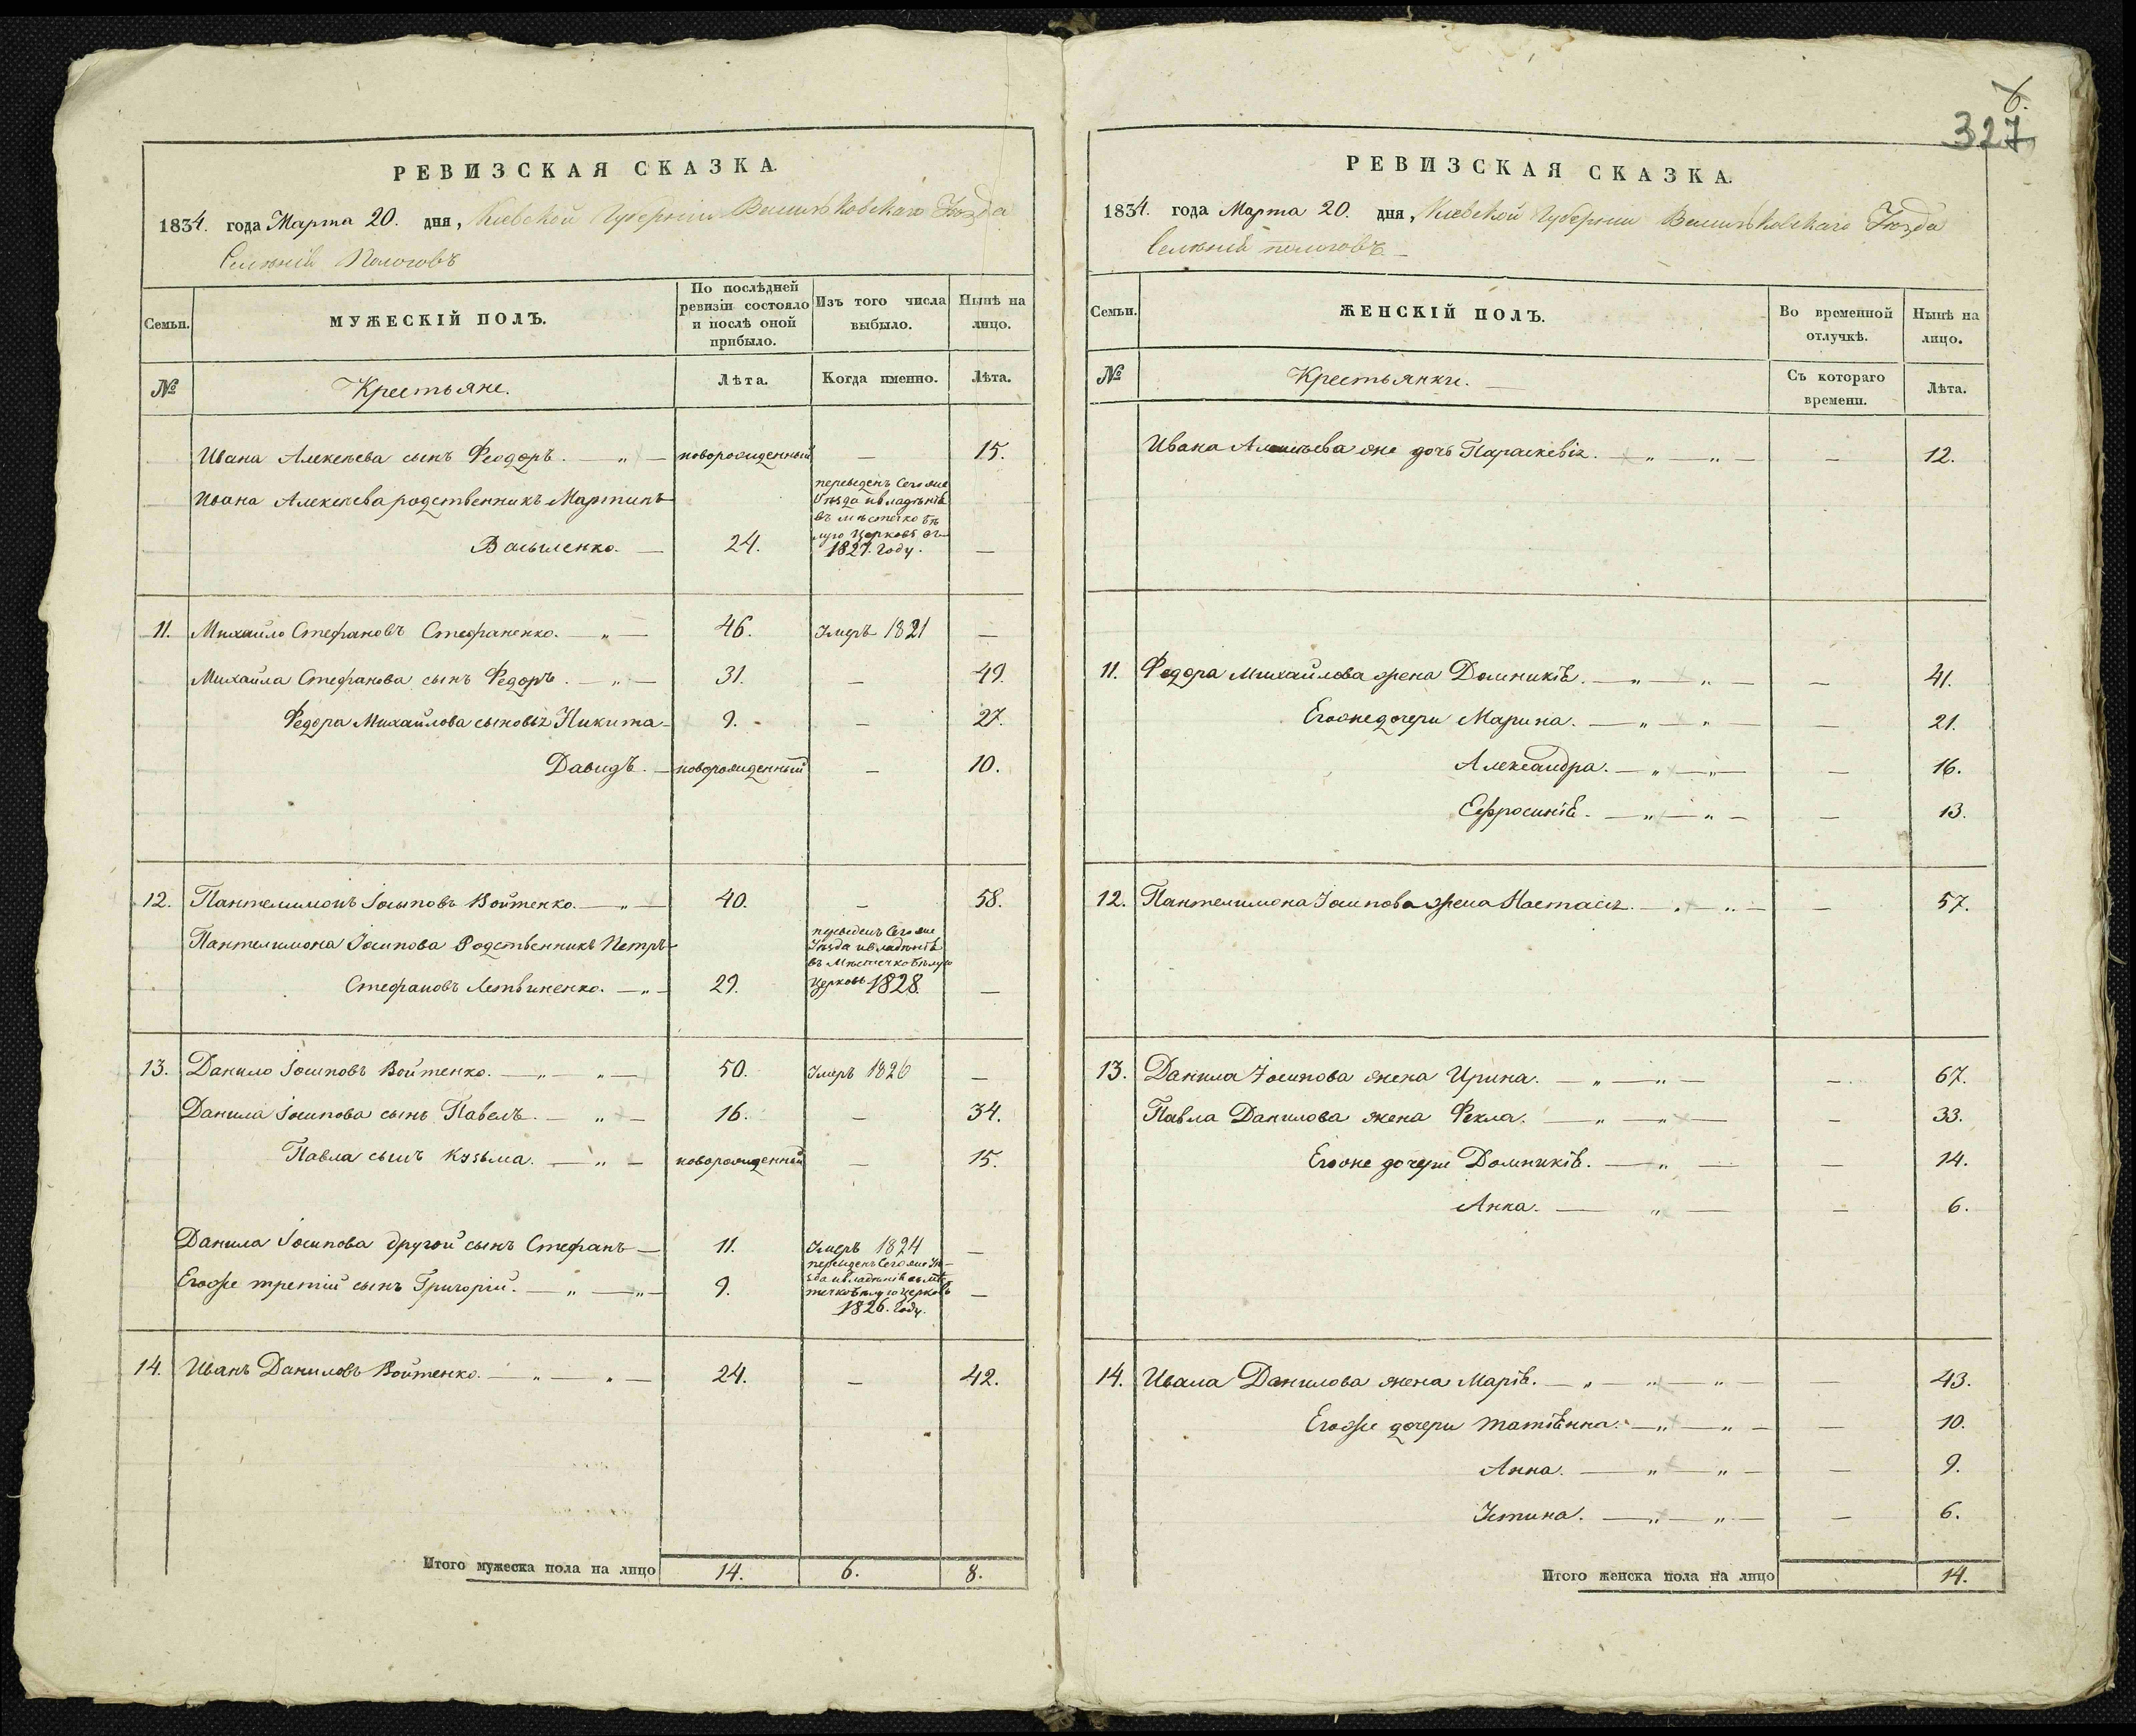 РЕВИЗСКАЯ СКАЗКА.
1834. года Марта 20. дня, Кіевской Губерніи Васильковскаго Уѣзда
Селенія Пологовъ
Семьи. МУЖЕСКІЙ ПОЛЪ. По послѣдней ревизіи состояло и послѣ оной прибыло. Изъ того числа выбыло. Нынѣ на лицо.
№ Крестьяне. Лѣта. Когда именно. Лѣта.
Ивана Алексѣева сынъ Феодоръ. — „ — новорожденный — 15.
Ивана Алексѣева родственникъ Мартинъ
Васыленко. — 24. переведенъ Сего же Уѣзда и владѣнія въ мѣстечко Бѣлую Церковь въ 1827. году. —
11. Михайло Стефановъ Стефаненко. — „ — 46. Умеръ 1821 —
Михайла Стефанова сынъ Федоръ. — „ — 31. — 49.
Федора Михайлова сыновья Никита — 9. — 27.
Давидъ. — новорожденный — 10.
12. Пантелимонъ Іосыповъ Войтенко. — „ — 40. — 58.
Пантелимона Іосипова Родственникъ Петръ
Стефановъ Литвиненко. — „ — 29. переведенъ Сего же Уѣзда и владѣнія въ Мѣстечко Бѣлую Церковь 1828. —
13. Данило Іосиповъ Войтенко. — „ — „ — 50. Умеръ 1826 —
Данила Іосипова сынъ Павелъ. — „ — 16. — 34.
Павла сынъ Кузьма. — „ — новорожденный — 15.
Данила Іосипова другой сынъ Стефанъ — 11. Умеръ 1824 —
Егоже третій сынъ Григорій. — „ — „ — 9. переведенъ Сего же Уѣзда и владѣнія въ мѣстечко Бѣлую Церковь 1826. году. —
14. Иванъ Даниловъ Войтенко. — „ — „ — 24. — 42.
Итого мужеска пола на лицо 14. 6. 8.
6.
327
РЕВИЗСКАЯ СКАЗКА.
1834. года Марта 20. дня, Кіевской Губерніи Васильковскаго Уѣзда
Селенія пологовъ —
Семьи. ЖЕНСКІЙ ПОЛЪ. Во временной отлучкѣ. Нынѣ на лицо.
№ Крестьянки. — Съ котораго времени. Лѣта.
Ивана Алексѣева же дочь Параскевія. — „ — „ — — 12.
11. Федора Михайлова жена Домникія. — „ — „ — — 41.
Егоже дочери Марина. — „ — „ — 21.
Александра. — „ — „ — — 16.
Ефросинія. — „ — „ — — 13.
12. Пантелимона Іосипова жена Настасія. — „ — „ — — 57.
13. Данила Іосипова жена Ирина. — „ — „ — — 67.
Павла Данилова жена Фекла. — „ — „ — — 33.
Егоже дочери Домникія. — „ — — 14.
Анна. — „ — — 6.
14. Ивана Данилова жена Марія. — „ — „ — „ — — 43.
Егоже дочери татіянна. — „ — „ — — 10.
Анна. — „ — „ — — 9.
Устина. — „ — „ — — 6.
Итого женска пола на лицо 14.